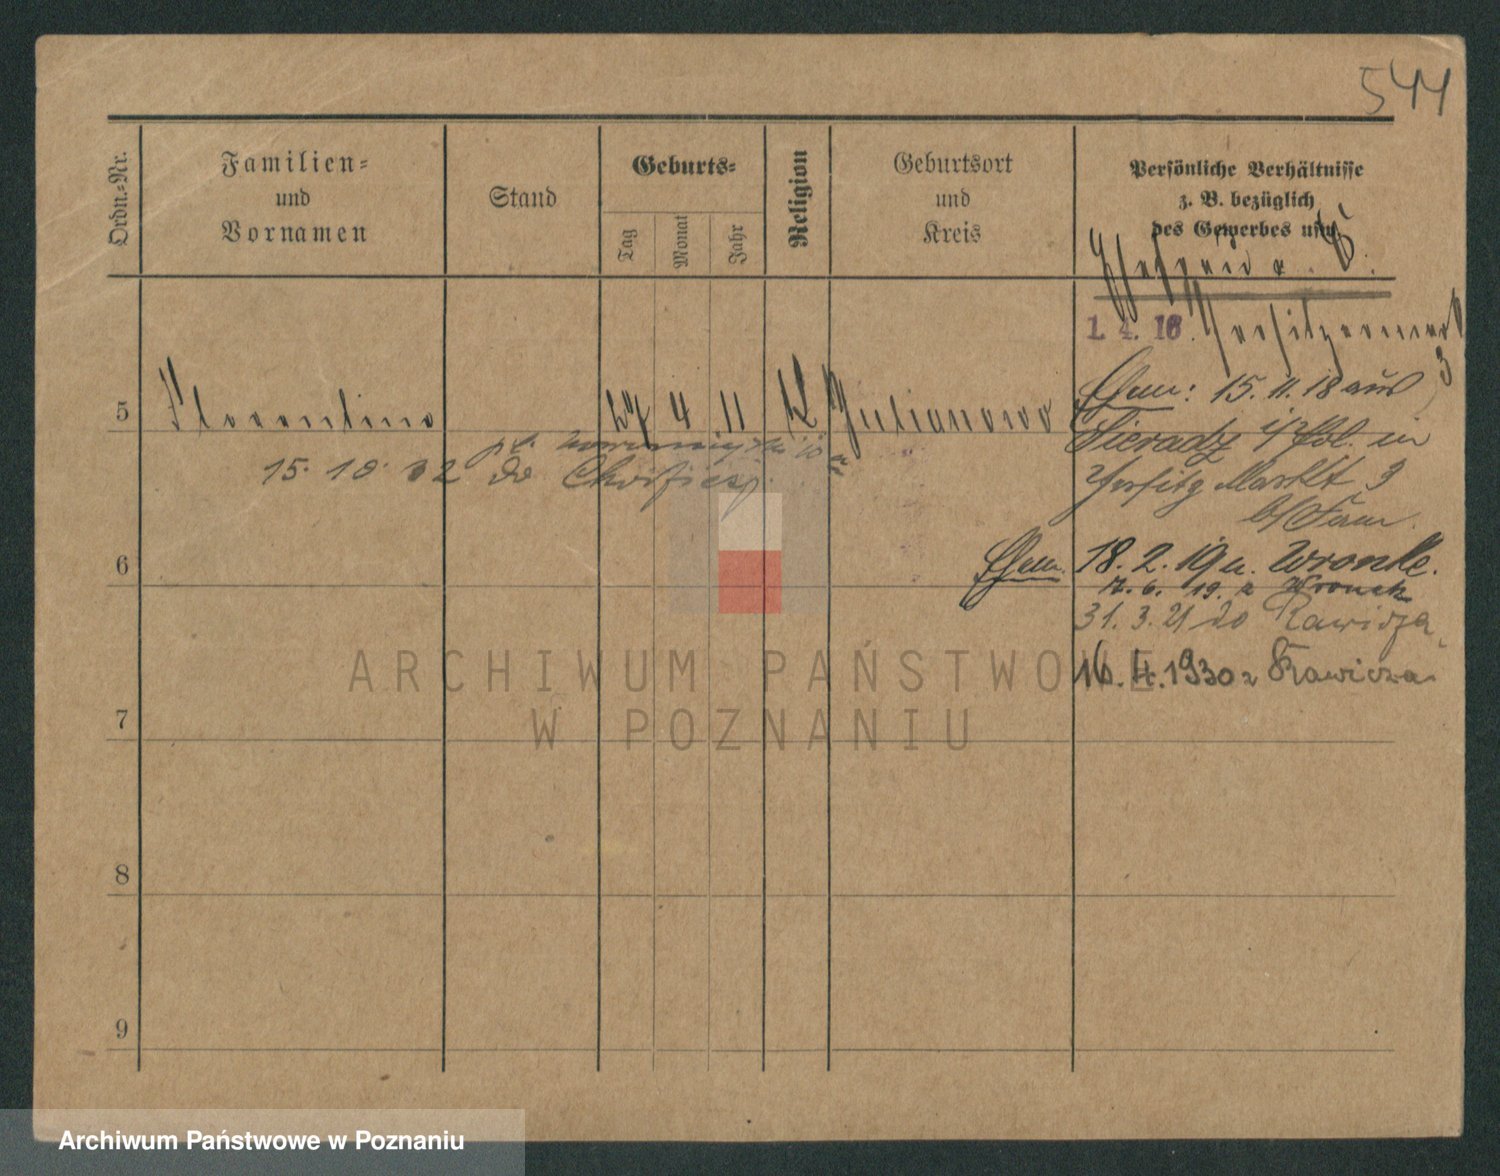 544
Ordn.=Nr.
Familien=
und
Vornamen
Stand
Geburts=
Tag
Monat
Jahr
Religion
Geburtsort
und
Kreis
Persönliche Verhältnisse
z. B. bezüglich
des Gewerbes usw.
1. 4. 16.
5
Florentine
27
4
11
K
Julianowo
Ehem: 15. 11. 18 aus
Sieradz i/ Pol. in
Markt 3
b/
15. 10. 32 do
6
18. 2. 19 n. Wronke.
17. 6. 19. a Wronek
31. 3. 21 do Rawicza
16. 4. 1930 z Rawicza
ARCHIWUM PAŃSTWOWE
W POZNANIU
7
8
9
Archiwum Państwowe w Poznaniu